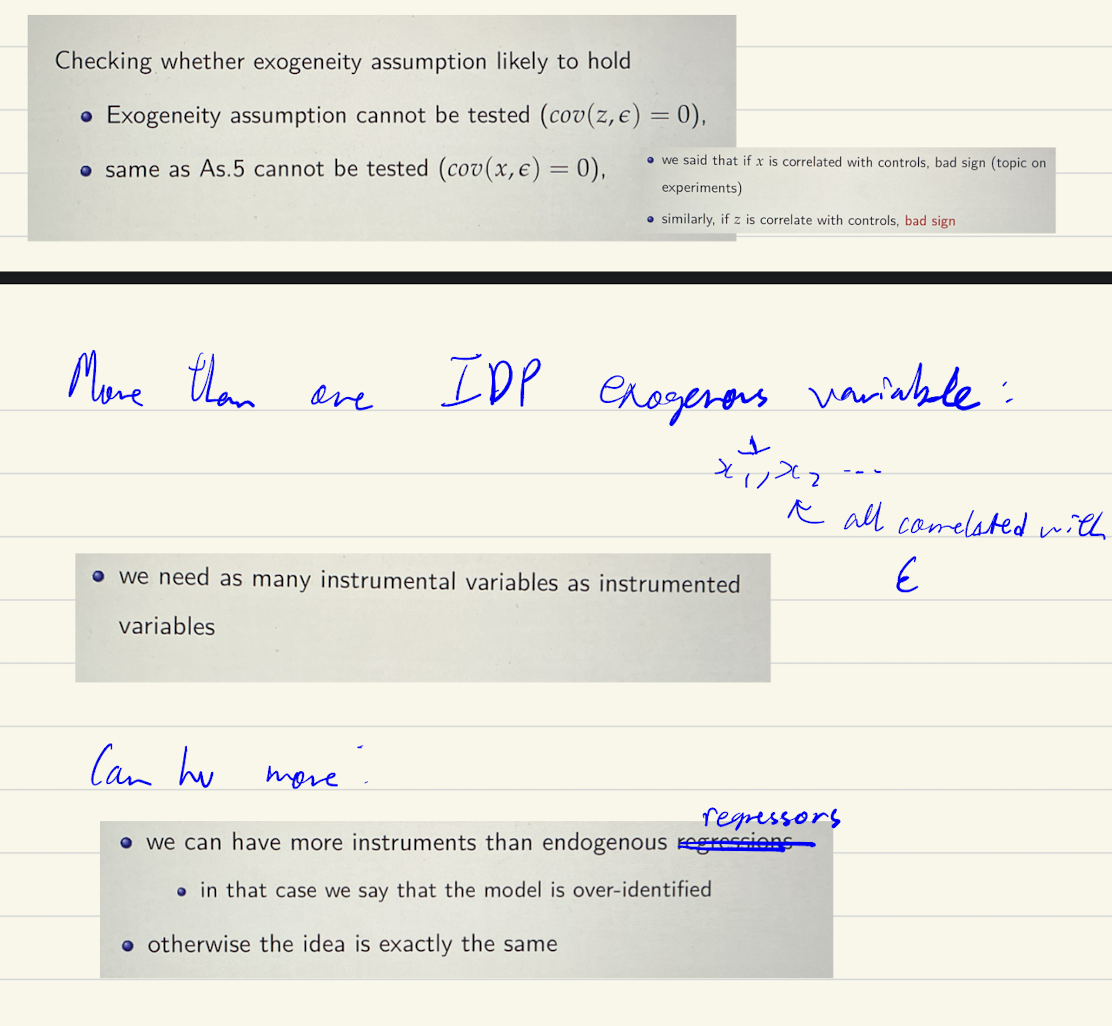 Checking whether exogeneity assumption likely to hold
Exogeneity assumption cannot be tested (cov(z, ϵ) = 0),
same as As.5 cannot be tested (cov(x, ϵ) = 0),
we said that if x is correlated with controls, bad sign (topic on
experiments)
similarly, if z is correlate with controls, bad sign
More than one IDP exogenous variable:
x₁, x₂ ---
↖ all correlated with
ϵ
we need as many instrumental variables as instrumented
variables
Can hv more:
regressors
we can have more instruments than endogenous regressions
in that case we say that the model is over-identified
otherwise the idea is exactly the same